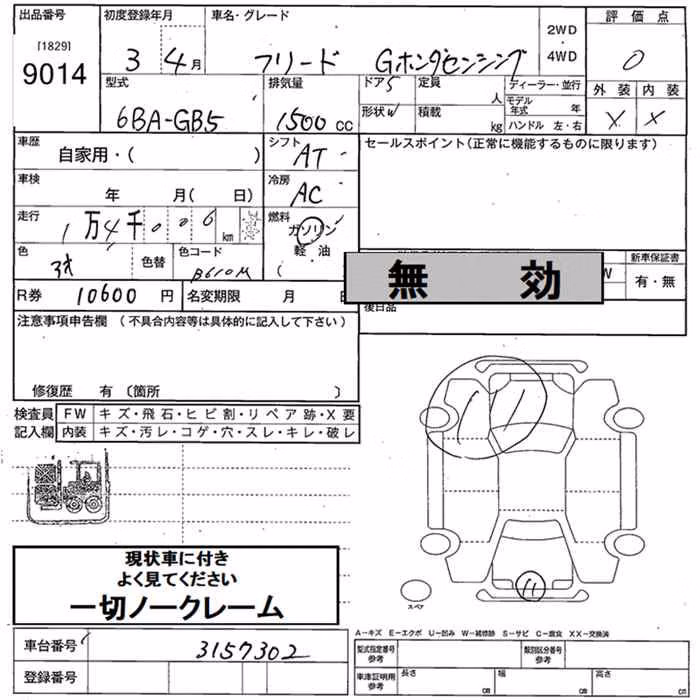 出品番号 初度登録年月 車名・グレード 2WD・4WD 評価点
[1829]
9014
3 4月 フリード Gホンダセンシング
0
型式 排気量 ドア 5 定員 人 ディーラー・並行 外装 内装
6BA-GB5 1500 CC 形状 W 積載 kg モデル年式 年 X X
ハンドル 左・右
車歴 自家用・( ) シフト AT セールスポイント(正常に機能するものに限ります)
車検 年 月( 日) 冷房 AC
走行 1万4千006 km 燃料 ガソリン
軽油
(
色 色替 色コード B610M
新車保証書
有・無
無 効
R券 10600 円 名変期限 月
後日品
注意事項申告欄 (不具合内容等は具体的に記入して下さい)
修復歴 有 〔箇所 〕
検査員 FW キズ・飛石・ヒビ割・リペア跡・X要
記入欄 内装 キズ・汚レ・コゲ・穴・スレ・キレ・破レ
現状車に付き
よく見てください
一切ノークレーム
スペア
A-キズ E-エクボ U-凹み W-補修跡 S-サビ C-腐食 XX-交換済
車台番号 3157302
型式指定番号 参考 類別区分番号 参考
登録番号
車庫証明用 参考 長さ cm 幅 cm 高さ cm